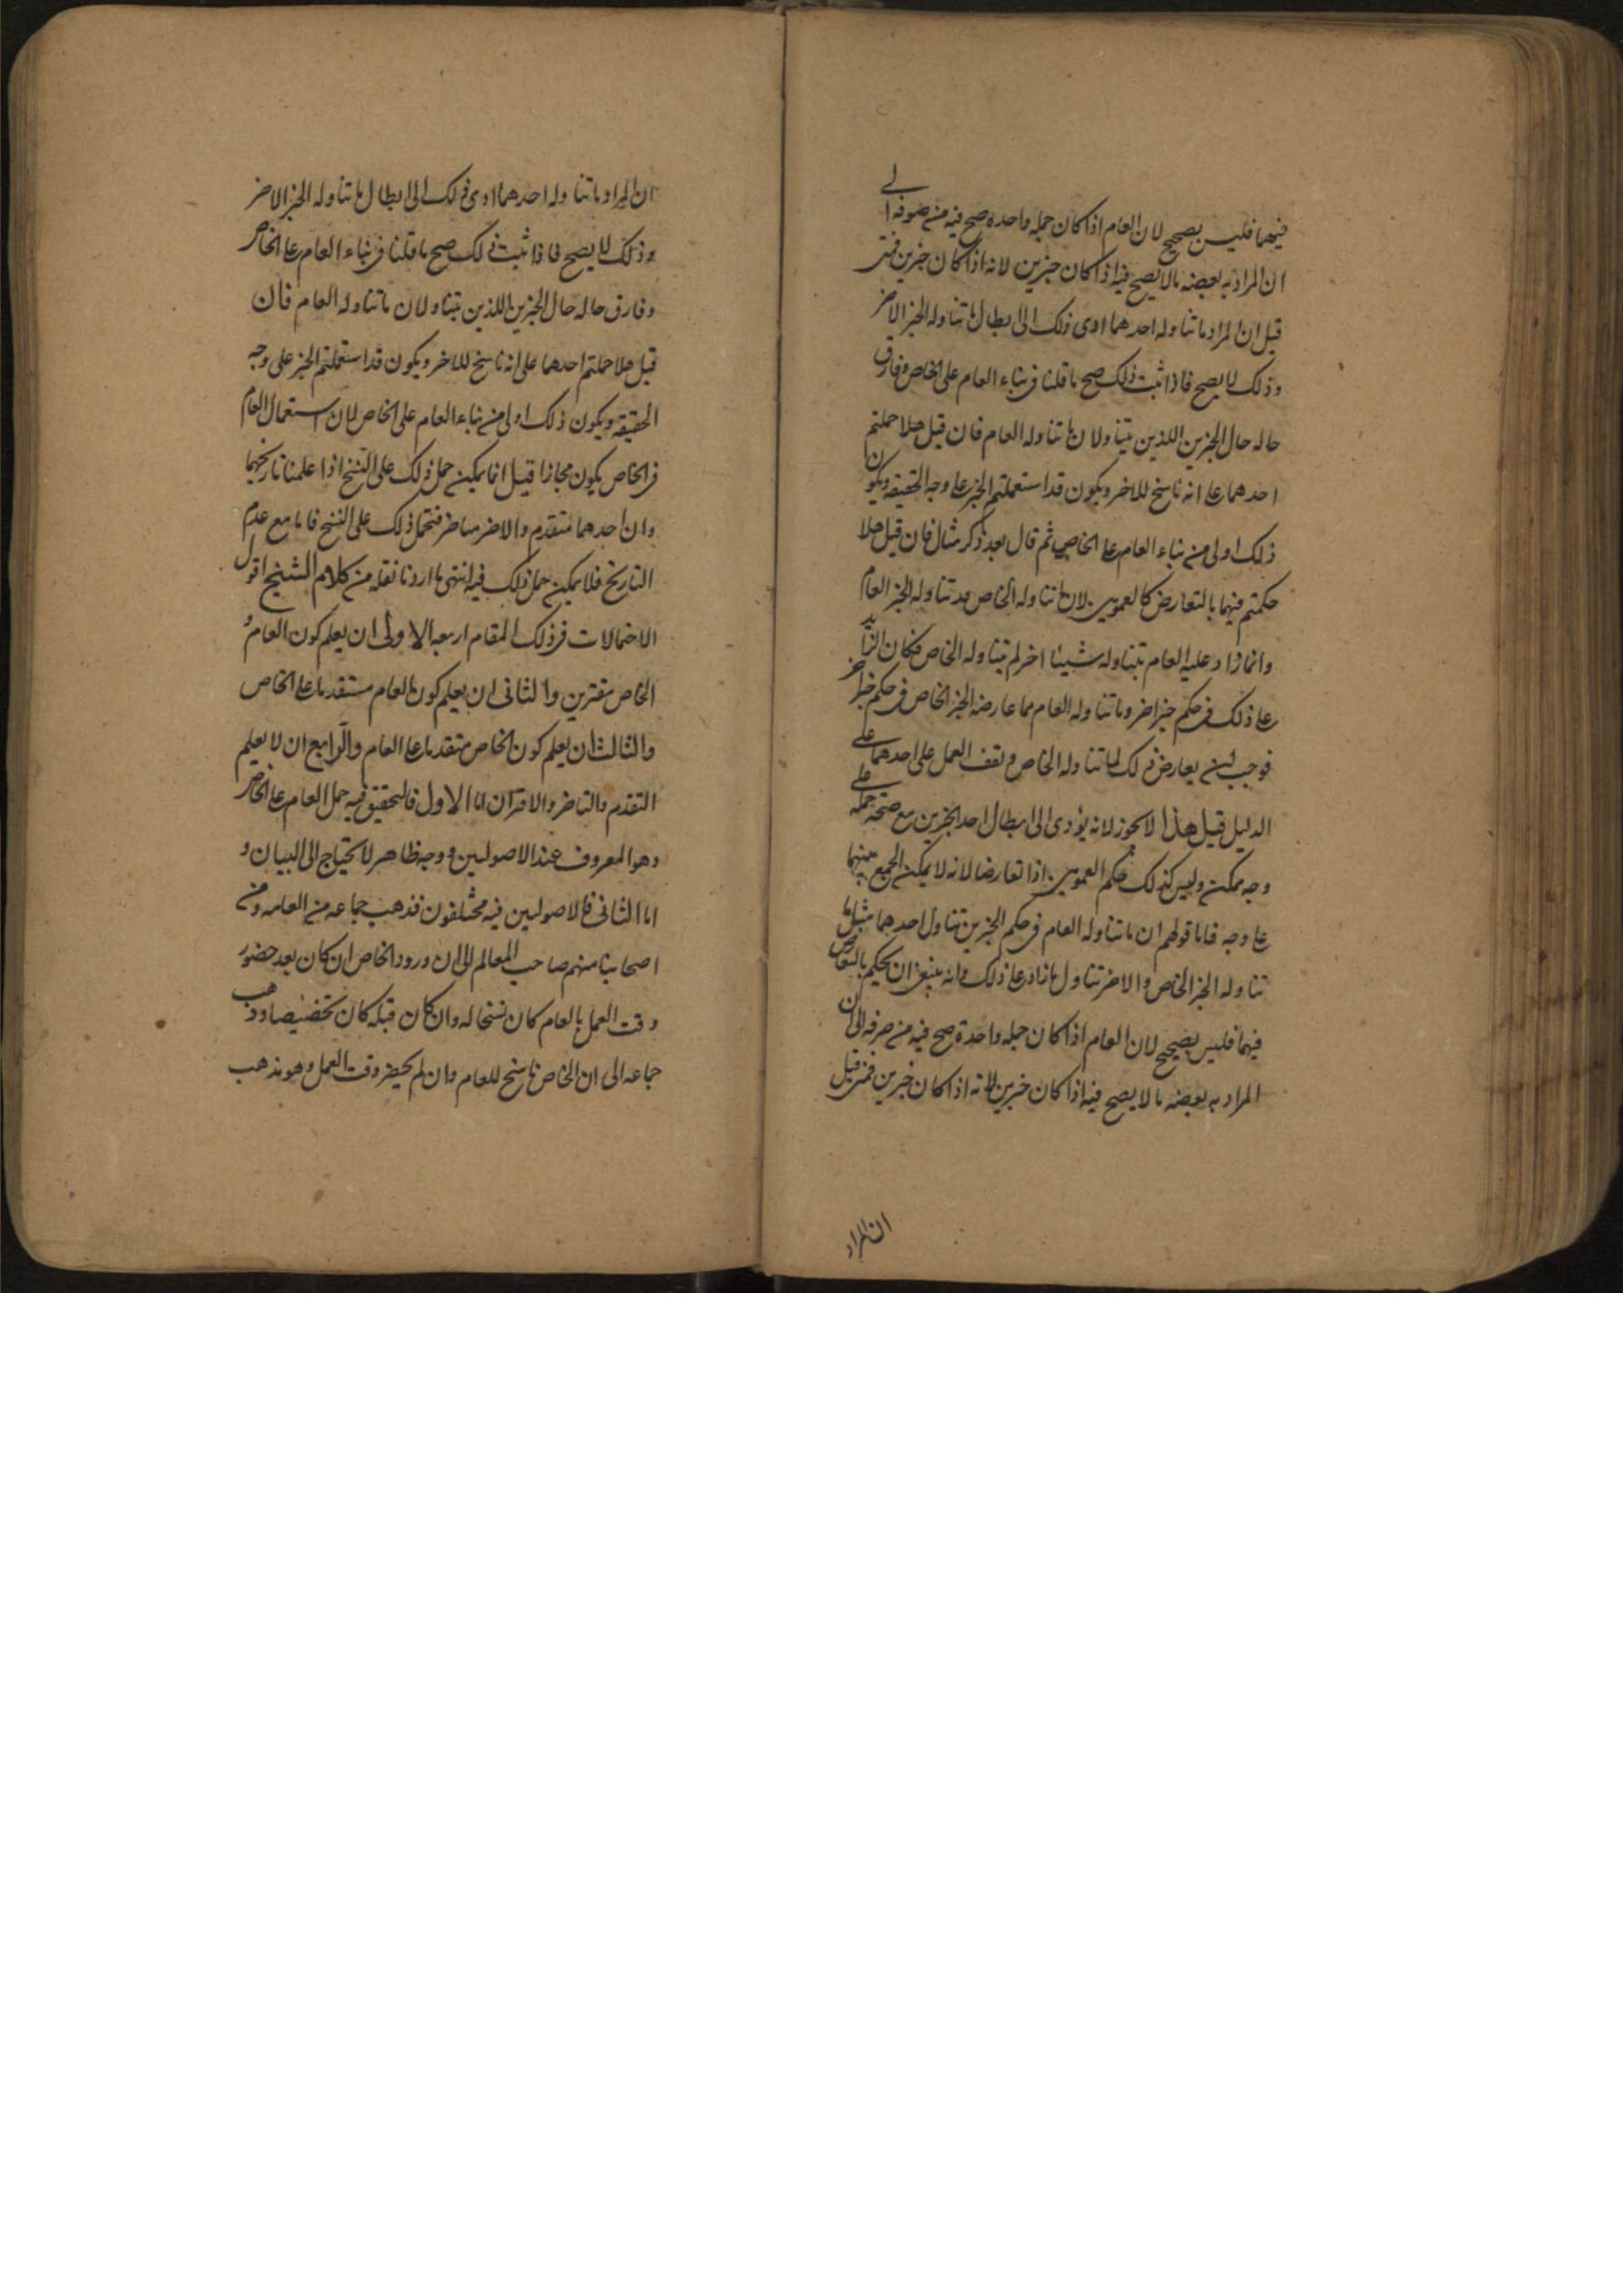 فيهما فليس بصحيح لان العام اذا كان جمله واحده صح فيه من صرفه الى
ان المراد به بعضه مالا يصح فيه اذا كان خبرين لانه اذا كان خبرين فمتى
قيل ان المراد ما تناوله احدهما ادى ذلك الى ابطال ما تناوله الخبر الاخر
وذلك لا يصح فاذا ثبت ذلك صح ما قلنا فى بناء العام على الخاص وفارق
حاله حال الخبرين اللذين يتناولان ما تناوله العام فان قيل هلا حملتم
احدهما على انه ناسخ للاخر ويكون قد استعملتم الخبر على وجه الحقيقه ويكون
ذلك اولى من بناء العام على الخاص ثم قال بعد ذكر مثال فان قيل هلا
حكمتم فيهما بالتعارض كالعمومين لان ما تناوله الخاص قد تناوله الخبر العام
وانما زاد عليه العام بتناوله شيئا اخر لم يتناوله الخاص فكان الزايد
على ذلك فى حكم خبر اخر وما تناوله العام مما عارضه الخبر الخاص فى حكم خبر اخر
فوجب ان يعارض ذلك لما تناوله الخاص و تقف العمل على احدهما على
الدليل قيل هذا لا يجوز لانه يؤدى الى ابطال احد الخبرين مع صحة حمله على
وجه ممكن وليس كذلك حكم العمومين اذا تعارضا لانه لا يمكن الجمع بينهما
على وجه فاما قولهم ان ما تناوله العام فى حكم الخبرين تناول احدهما مثل ما
تناوله الخبر الخاص والاخر تناول ما زاد على ذلك وانه ينبغى ان يحكم بالتعارض
فيهما فليس بصحيح لان العام اذا كان جمله واحدة صح فيه من صرفه الى ان
المراد به بعضه ما لا يصح فيه اذا كان خبرين لانه اذا كان خبرين فمتى قيل
ان المراد
ان المراد ما تناوله احدهما ادى ذلك الى ابطال ما تناوله الخبر الاخر
وذلك لا يصح فاذا ثبت ذلك صح ما قلنا فى بناء العام على الخاص
وفارق حاله حال الخبرين اللذين يتناولان ما تناوله العام فان
قيل هلا حملتم احدهما على انه ناسخ للاخر ويكون قد استعملتم الخبر على وجه
الحقيقه ويكون ذلك اولى من بناء العام على الخاص لان استعمال العام
فى الخاص يكون مجازا قيل انما يمكن حمل ذلك على النسخ اذا علمنا تاريخهما
وان احدهما متقدم والاخر متاخر فنحمل ذلك على النسخ فاما مع عدم
التاريخ فلا يمكن حمل ذلك فيه انتهى ما اردنا نقله من كلام الشيخ اقول
الاحتمالات فى ذلك المقام اربعه الاولى ان يعلم كون العام و
الخاص مقترنين والثانى ان يعلم كون العام متقدما على الخاص
والثالث ان يعلم كون الخاص متقدما على العام والرابع ان لا يعلم
التقدم والتاخر والاقتران اما الاول فالتحقيق فيه حمل العام على الخاص
وهو المعروف عند الاصوليين ووجه ظاهر لا يحتاج الى البيان و
اما الثانى فالاصوليين فيه مختلفون فذهب جماعه من العامه ومن
اصحابنا منهم صاحب المعالم الى ان ورود الخاص ان كان بعد حضور
وقت العمل بالعام كان نسخا له وان كان قبله كان تخصيصا وذهب
جماعه الى ان الخاص ناسخ للعام وان لم يحضر وقت العمل وهو مذهب